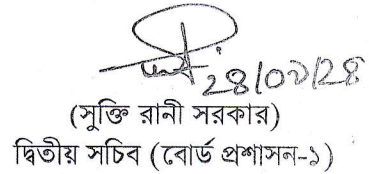 ২৪/০৩/২৪
(সুক্তি রানী সরকার)
দ্বিতীয় সচিব (বোর্ড প্রশাসন-১)